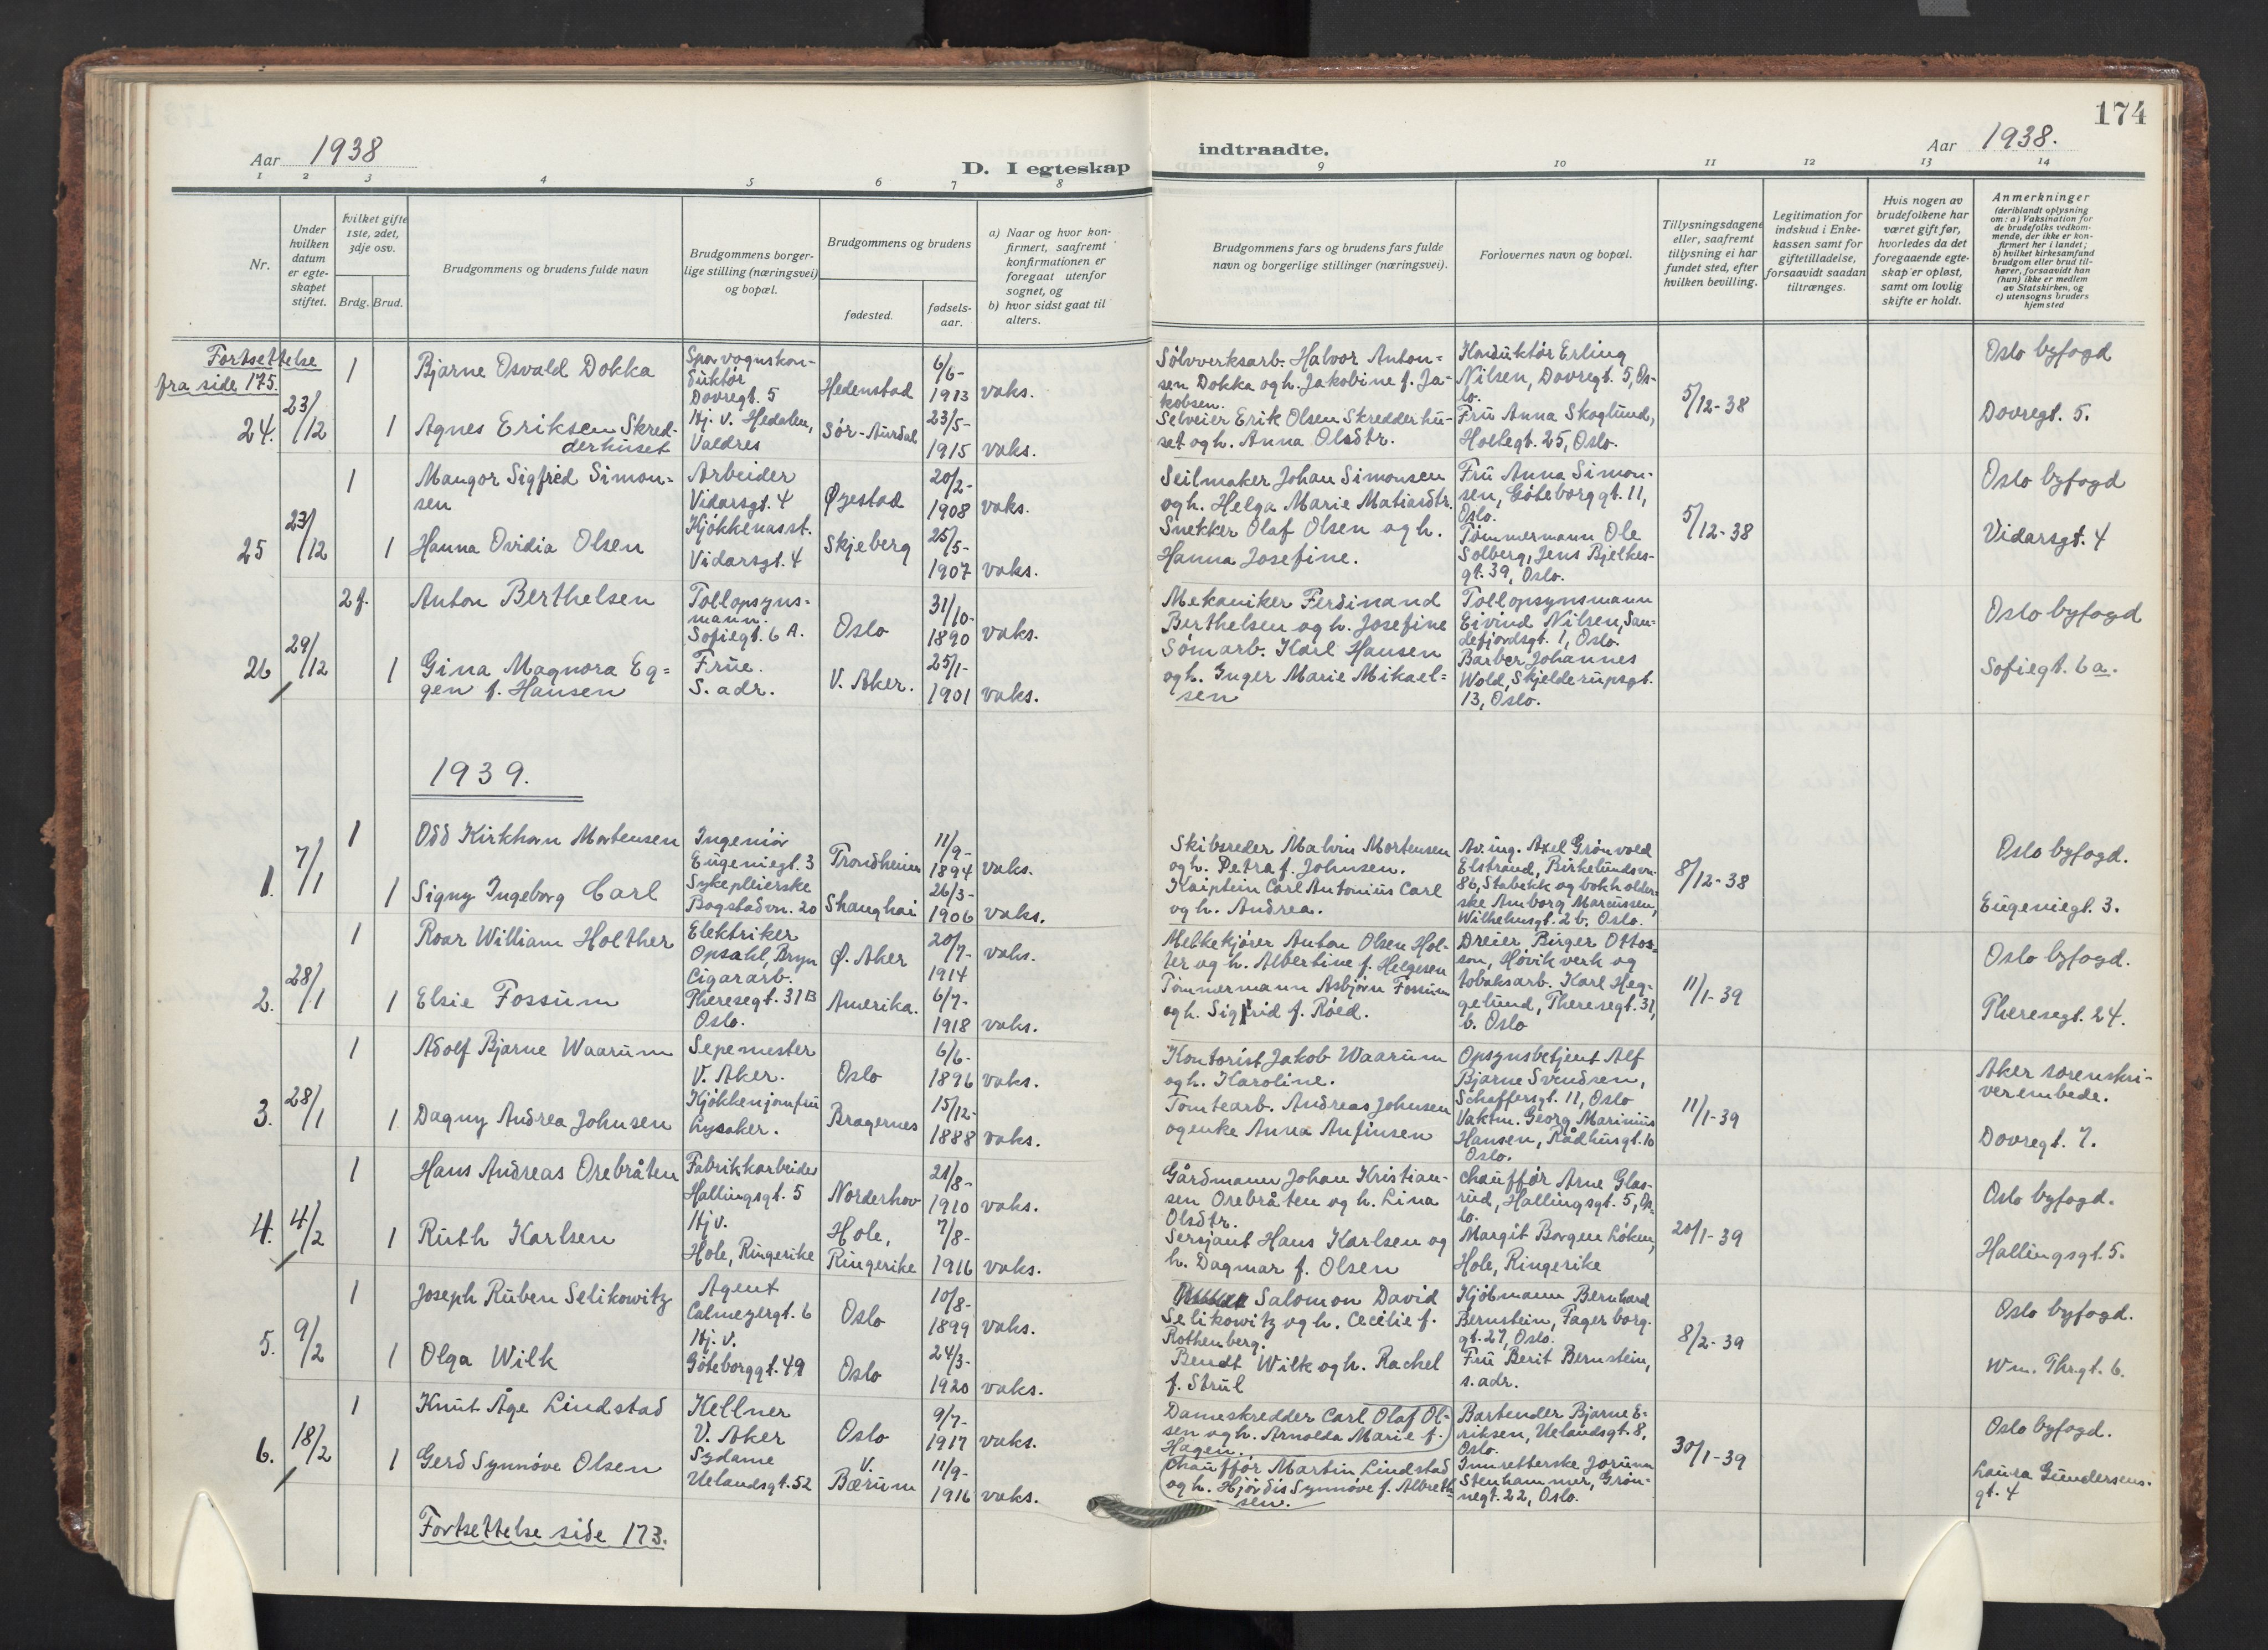 174
Aar 1938
D. I egteskap
indtraadte.
Aar 1938.
1 2 3 4 5 6 7 8 9 10 11 12 13 14
Nr.
Under
hvilken
datum
er egte-
skapet
stiftet.
hvilket gifte
1ste, 2det,
3dje osv.
Brdg. Brud.
Brudgommens og brudens fulde navn
Brudgommens borger-
lige stilling (næringsvei)
og bopæl.
Brudgommens og brudens
fødested.
fødsels-
aar.
a) Naar og hvor kon-
firmert, saafremt
konfirmationen er
foregaat utenfor
sognet, og
b) hvor sidst gaat til
alters.
Brudgommens fars og brudens fars fulde
navn og borgerlige stillinger (næringsvei).
Forlovernes navn og bopæl.
Tillysningsdagene
eller, saafremt
tillysning ei har
fundet sted, efter
hvilken bevilling.
Legitimation for
indskud i Enke-
kassen samt for
giftetilladelse,
forsaavidt saadan
tiltrænges.
Hvis nogen av
brudefolkene har
været gift før,
hvorledes da det
foregaaende egte-
skap er opløst,
samt om lovlig
skifte er holdt.
Anmerkninger
(deriblandt oplysning
om: a) Vaksination for
de brudefolks vedkom-
mende, der ikke er kon-
firmert her i landet;
b) hvilket kirkesamfund
brudgom eller brud til-
hører, forsaavidt han
(hun) ikke er medlem
av Statskirken, og
c) utensogns bruders
hjemsted
Fortsettelse
fra side 175.
24. 23/12
1
Bjarne Osvald Dokka
Sporvognskon-
duktør
Dovregt. 5
Hedenstad
6/6-
1913 vaks.
1
Agnes Eriksen Skred-
derhuset
Hj. v. Hedalen,
Valdres
Sør-Aurdal
23/5-
1915 vaks.
Sølvverksarb. Halvor Anton-
sen Dokka og h. Jakobine f. Ja-
kobsen.
Selveier Erik Olsen Skredderhu-
set og h. Anna Olsdtr.
Konduktør Erling
Nilsen, Dovregt. 5, Os-
lo.
Fru Anna Skoglund,
Holtegt. 25, Oslo.
5/12-38
Oslo byfogd
Dovregt. 5.
25 23/12
1
Mangor Sigfred Simon-
sen
Arbeider
Vidarsgt. 4
Øyestad
20/2-
1908 vaks.
1
Hanna Ovidia Olsen
Kjøkkenasst.
Vidarsgt. 4
Skjeberg
25/5-
1907 vaks.
Seilmaker Johan Simonsen
og h. Helga Marie Matiasdtr.
Snekker Olaf Olsen og h.
Hanna Josefine.
Fru Anna Simon-
sen, Göteborggt. 11,
Oslo.
Tømmermann Ole
Solberg, Jens Bjelkes-
gt. 39, Oslo.
5/12-38
Oslo byfogd
Vidarsgt. 4
26 29/12
2 f.
Anton Berthelsen
Tollopsyns-
mann.
Sofiegt. 6 A.
Oslo
31/10-
1890 vaks.
1
Gina Magnora Eg-
gen f. Hansen
Frue.
S. adr.
V. Aker.
25/1-
1901 vaks.
Mekaniker Ferdinand
Berthelsen og h. Josefine
Sømarb. Karl Hansen
og h. Inger Marie Mikael-
sen
Tollopsynsmann
Eivind Nilsen, San-
defjordsgt. 1, Oslo.
Barber Johannes
Wold, Skjelderupsgt.
13, Oslo.
Oslo byfogd
Sofiegt. 6 a.
1939.
1. 7/1
1
Odd Kirkhorn Mortensen
Ingeniør
Eugeniegt. 3
Trondheim
11/9-
1894 vaks.
1
Signy Ingeborg Carl
Sykepleierske
Bogstadvn. 20
Shanghai
26/3-
1906 vaks.
Skibsreder Malvin Mortensen
og h. Petra f. Johnsen.
Kaiptein Carl Antonius Carl
og h. Andrea.
Av. ing. Axel Grønvold
Elstrand, Birkelundsvn.
86, Stabekk og bokholder-
ske Amborg Marcussen,
Wilhelmsgt. 2 b. Oslo.
8/12-38
Oslo byfogd.
Eugeniegt. 3.
2. 28/1
1
Roar William Holther
Elektriker
Opsahl, Bryn
Ø. Aker
20/7-
1914 vaks.
1
Elsie Fossum
Cigararb.
Theresegt. 31 B
Oslo.
Amerika.
6/7-
1918 vaks.
Melkekjører Anton Olsen Hol-
ter og h. Albertine f. Helgesen
Tømmermann Asbjørn Fossum
og h. Sigrid f. Røed.
Dreier Birger Ottos-
son, Høvik verk og
tobaksarb. Karl Heg-
gelund, Theresegt. 31,
b. Oslo
11/1-39
Oslo byfogd.
Theresegt. 24.
3. 28/1
1
Adolf Bjarne Waarum
Sepemester
V. Aker.
Oslo
6/6-
1896 vaks.
1
Dagny Andrea Johnsen
Kjøkkenjomfru
Lysaker.
Bragernes
15/12-
1888 vaks.
Kontorist Jakob Waarum
og h. Karoline.
Tomtearb. Andreas Johnsen
og enke Anna Anfinsen
Opsynsbetjent Alf
Bjarne Svendsen,
Schaffersgt. 11, Oslo
Vaktm. Georg Marinius
Hansen, Rådhusgt. 10
Oslo.
11/1-39
Aker sorenskri-
verembede.
Dovregt. 7.
4. 4/2
1
Hans Andreas Orebråten
Fabrikkarbeider
Hallingsgt. 5
Norderhov
21/8-
1910 vaks.
1
Ruth Karlsen
Hj v.
Hole, Ringerike
Hole,
Ringerike
7/8-
1916 vaks.
Gårdmann Johan Kristian-
sen Orebråten og h. Lina
Olsdtr.
Sersjant Hans Karlsen og
h. Dagmar f. Olsen
Chauffør Arne Glas-
rud, Hallingsgt. 5, Os-
lo.
Margit Borgen Løken,
Hole, Ringerike
20/1-39
Oslo byfogd.
Hallingsgt. 5.
5. 9/2
1
Joseph Ruben Selikowitz
Agent
Calmeyergt. 6
Oslo
10/8-
1899 vaks.
1
Olga Wilk
Hj. v.
Göteborggt. 49
Oslo
24/3-
1920 vaks.
Salomon David
Selikowitz og h. Cecilie f.
Rothenberg.
Bendt Wilk og h. Rachel
f. Strul
Kjøbmann Bernhard
Bernstein, Fagerborg-
gt. 27, Oslo.
Fru Berit Bernstein,
s. adr.
8/2-39
Oslo byfogd.
Wm. Thr.gt. 6.
6. 18/2
1
Knut Åge Lindstad
Kellner
V. Aker
Oslo
9/7-
1917 vaks.
1
Gerd Synnøve Olsen
Sydame
Uelandsgt. 52
V.
Bærum
11/9-
1916 vaks.
Dameskredder Carl Olaf Ol-
sen og h. Arnolda Marie f.
Hagen.
Chauffør Martin Lindstad
og h. Hjørdis Synnøve f. Albreth-
sen.
Bartender Bjarne E-
riksen, Uelandsgt. 8,
Oslo.
Innretterske Jorunn
Stenhammer, Grøn-
negt. 22, Oslo.
30/1-39
Oslo byfogd.
Laura Gundersens-
gt. 4
Fortsettelse side 173.